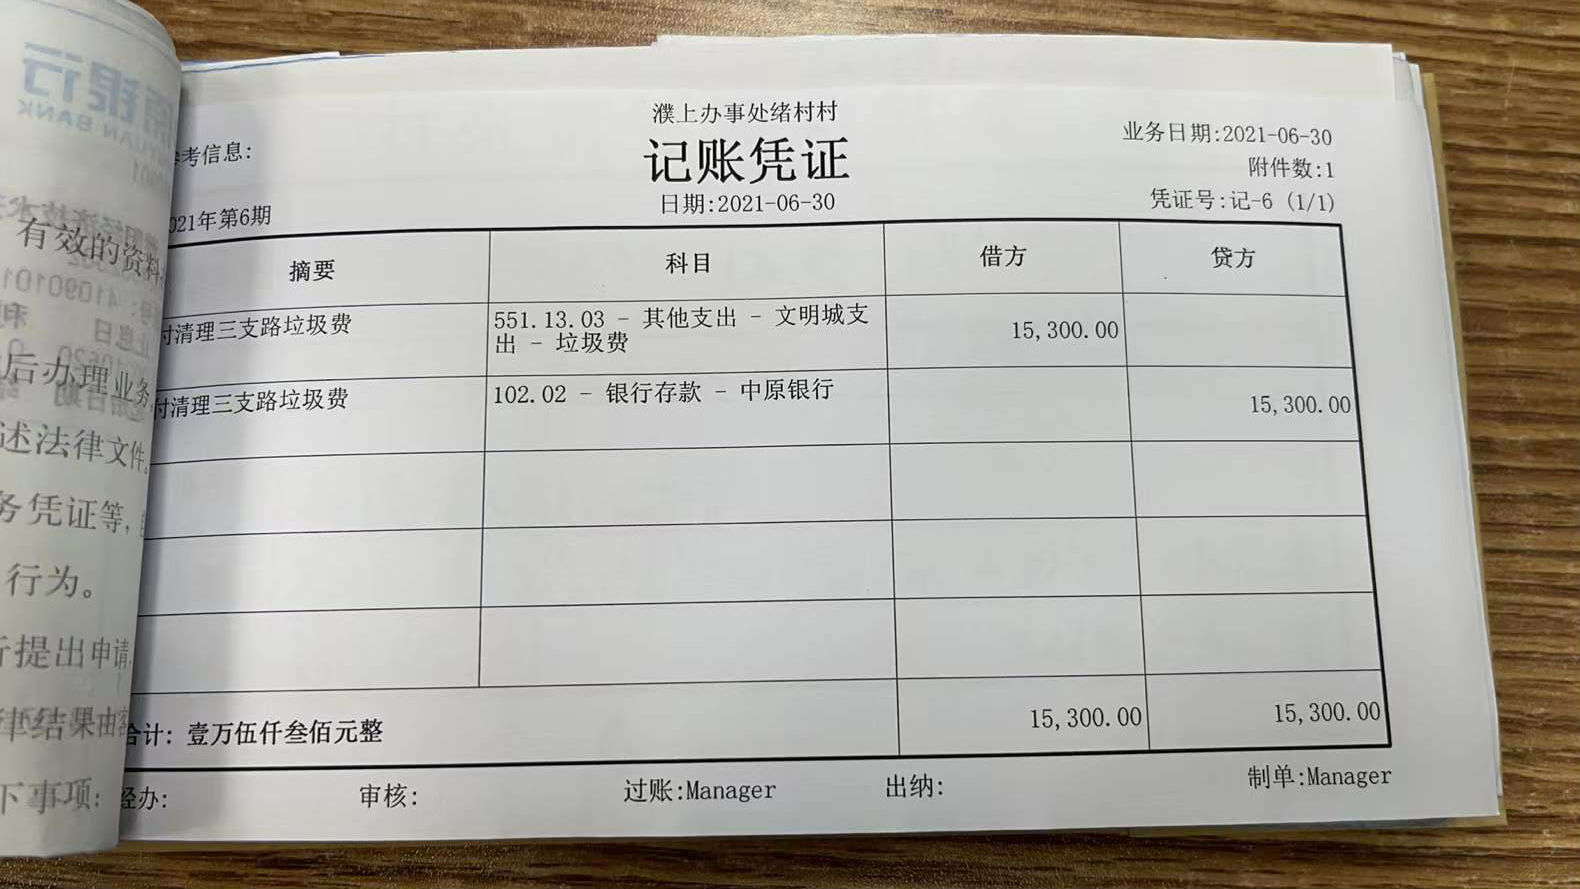 濮上办事处绪村村
记账凭证
日期:2021-06-30
考信息:
业务日期:2021-06-30
附件数:1
凭证号:记-6 (1/1)
021年第6期
摘要 科目 借方 贷方
付清理三支路垃圾费 551.13.03 - 其他支出 - 文明城支
出 - 垃圾费 15,300.00
付清理三支路垃圾费 102.02 - 银行存款 - 中原银行 15,300.00
合计: 壹万伍仟叁佰元整 15,300.00 15,300.00
经办: 审核: 过账:Manager 出纳: 制单:Manager
有效的资料
后办理业务
述法律文件。
务凭证等,
行为。
提出申请
律结果由客
下事项: